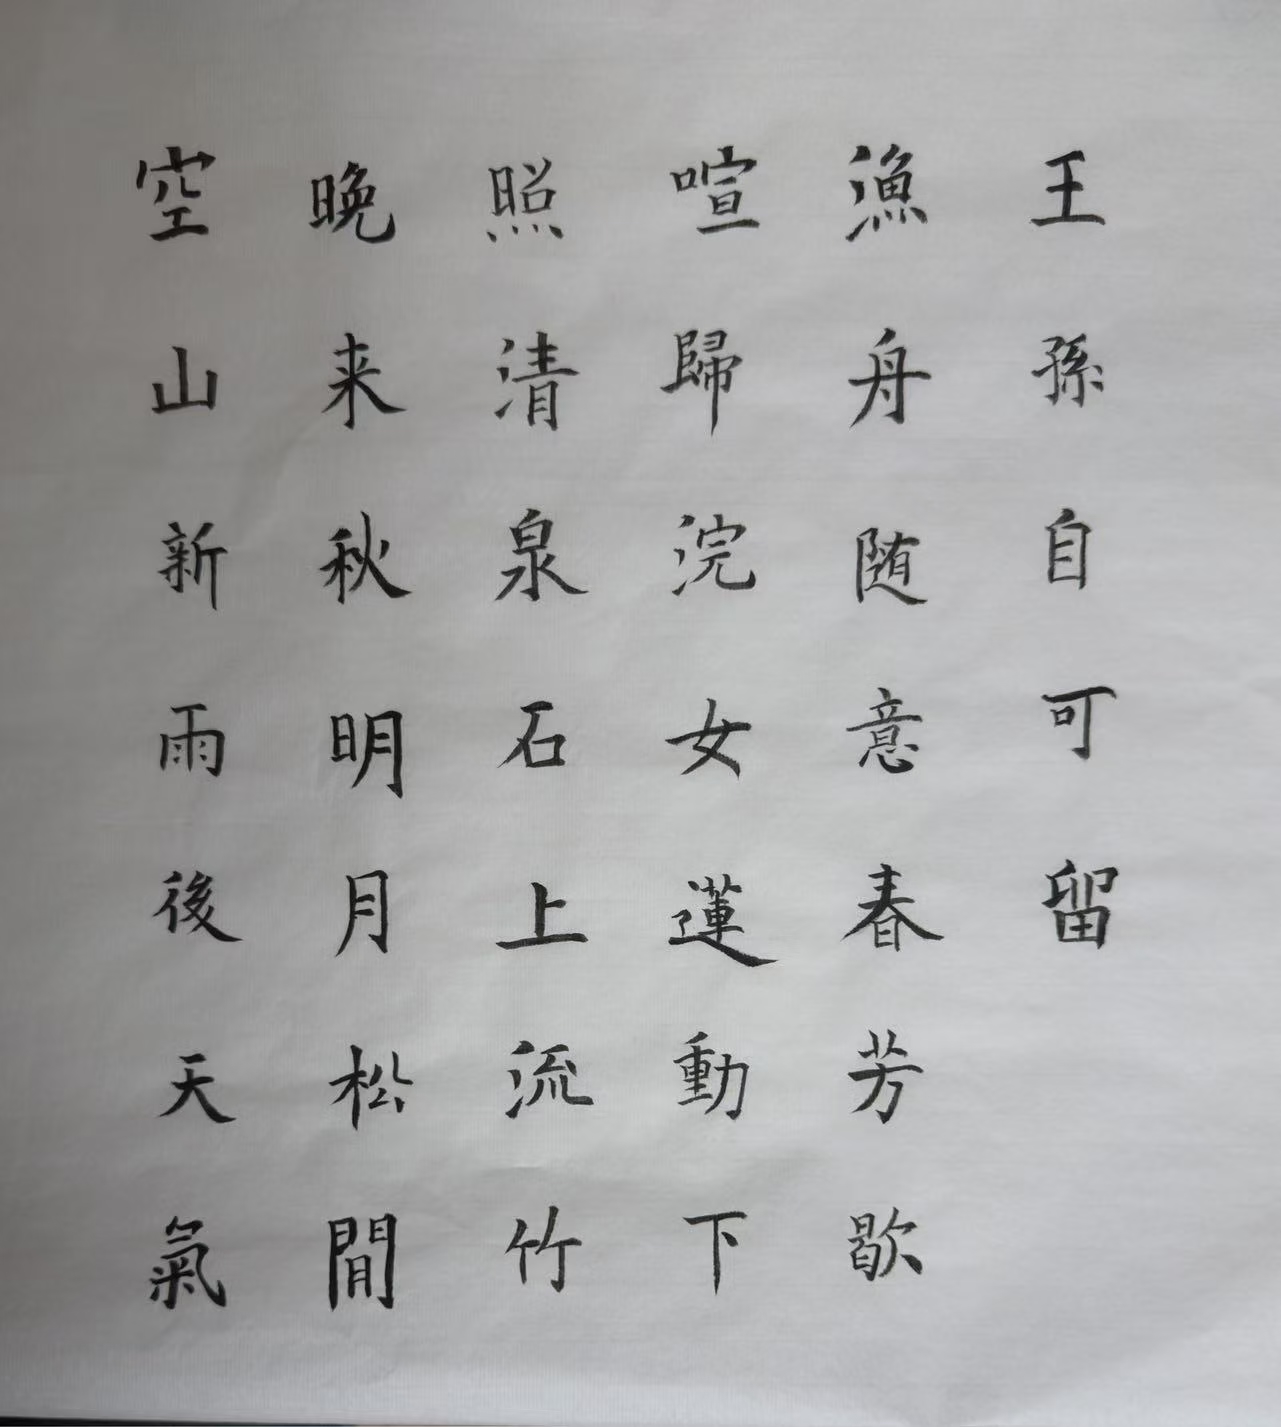 空山新雨後天氣
晚来秋明月松間
照清泉石上流竹
喧歸浣女蓮動下
漁舟随意春芳歇
王孫自可留